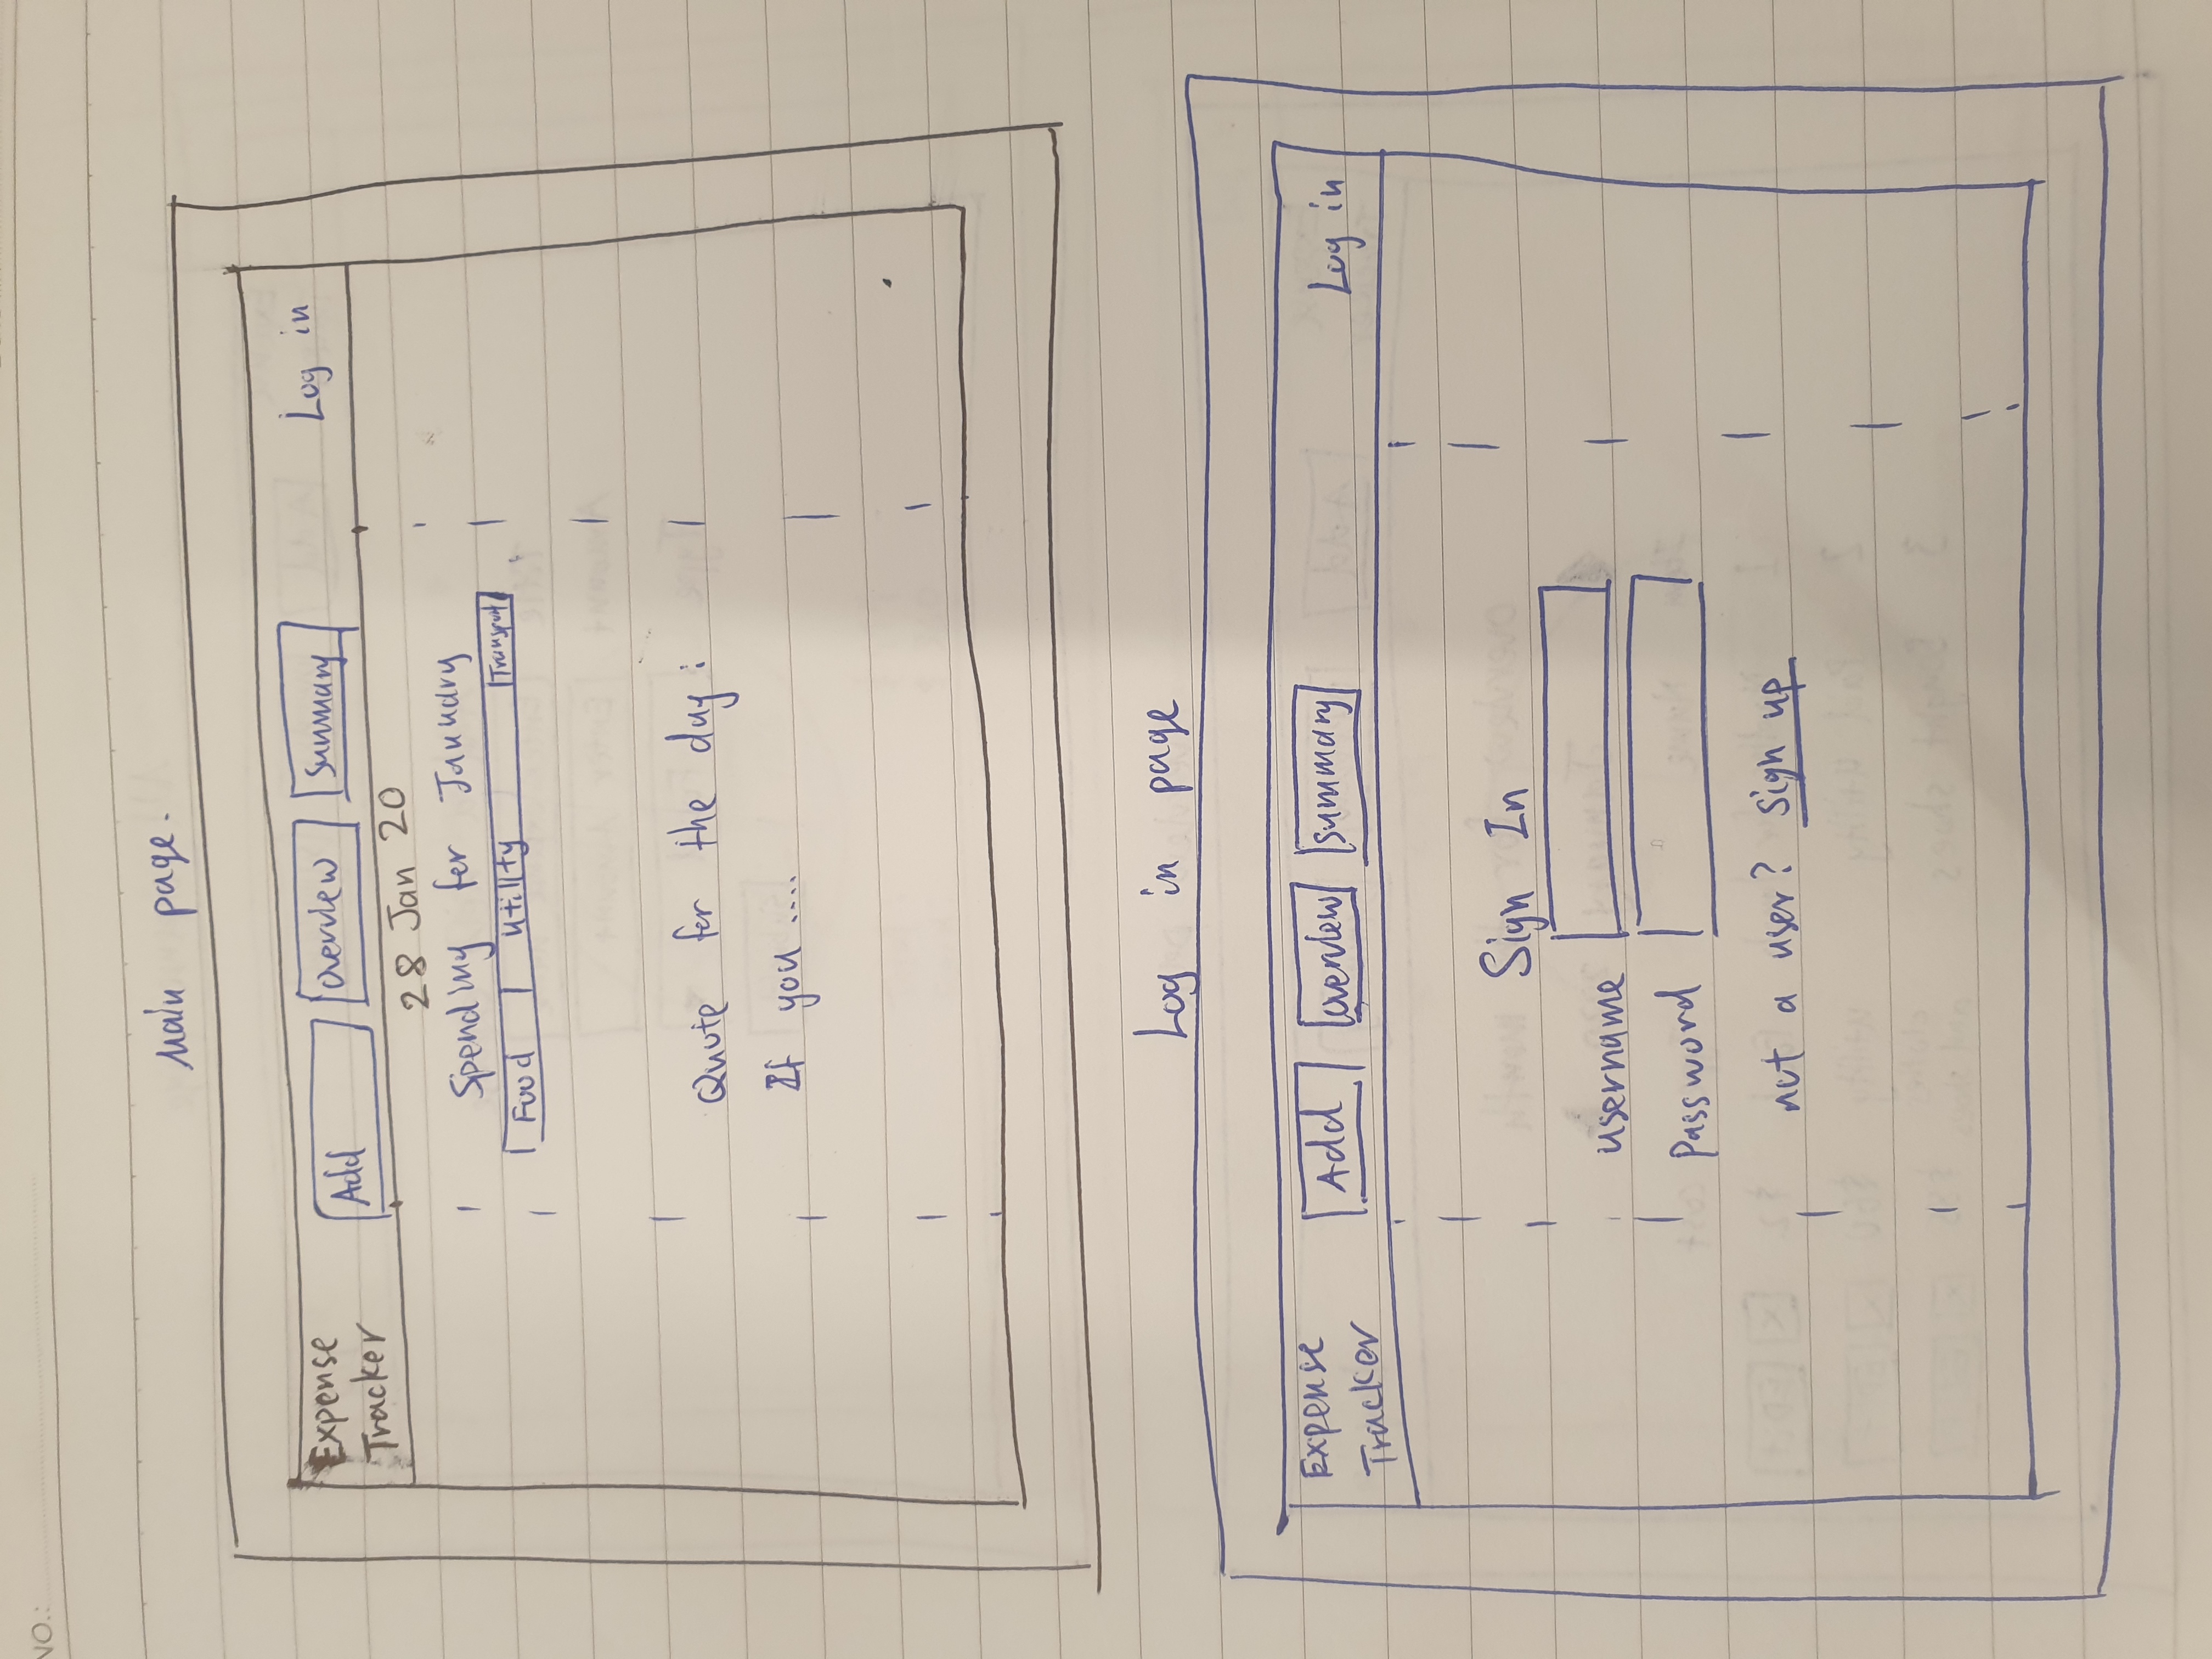 NO.:
Main page.
Expense
Tracker
Add
Overview
Summary
Log in
28 Jan 20
Spending for January
Food
Utility
Transport
Quote for the day:
If you ....
Log in page
Expense
Tracker
Add
Overview
Summary
Log in
Sign In
username
Password
not a user? Sign up